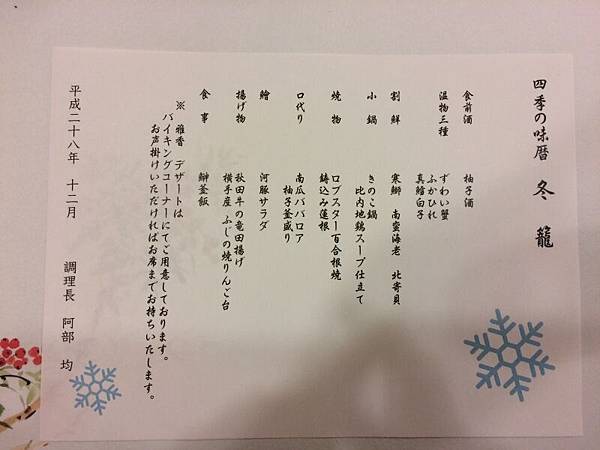 四季の味暦 冬籠
食前酒 柚子酒
温物三種 ずわい蟹
ふかひれ
真鱈白子
割鮮 寒鰤 南蛮海老 北寄貝
小鍋 きのこ鍋
比内地鶏スープ仕立て
焼物 ロブスター百合根焼
鋳込み蓮根
口代り 南瓜ババロア
柚子釜盛り
鱠 河豚サラダ
揚げ物 秋田牛の竜田揚げ
横手産 ふじの焼りんご台
食事 鰤釜飯
※ 雅香 デザートは
バイキングコーナーにてご用意しております。
お声掛けいただければお席までお持ちいたします。
平成二十八年 十二月
調理長 阿部 均